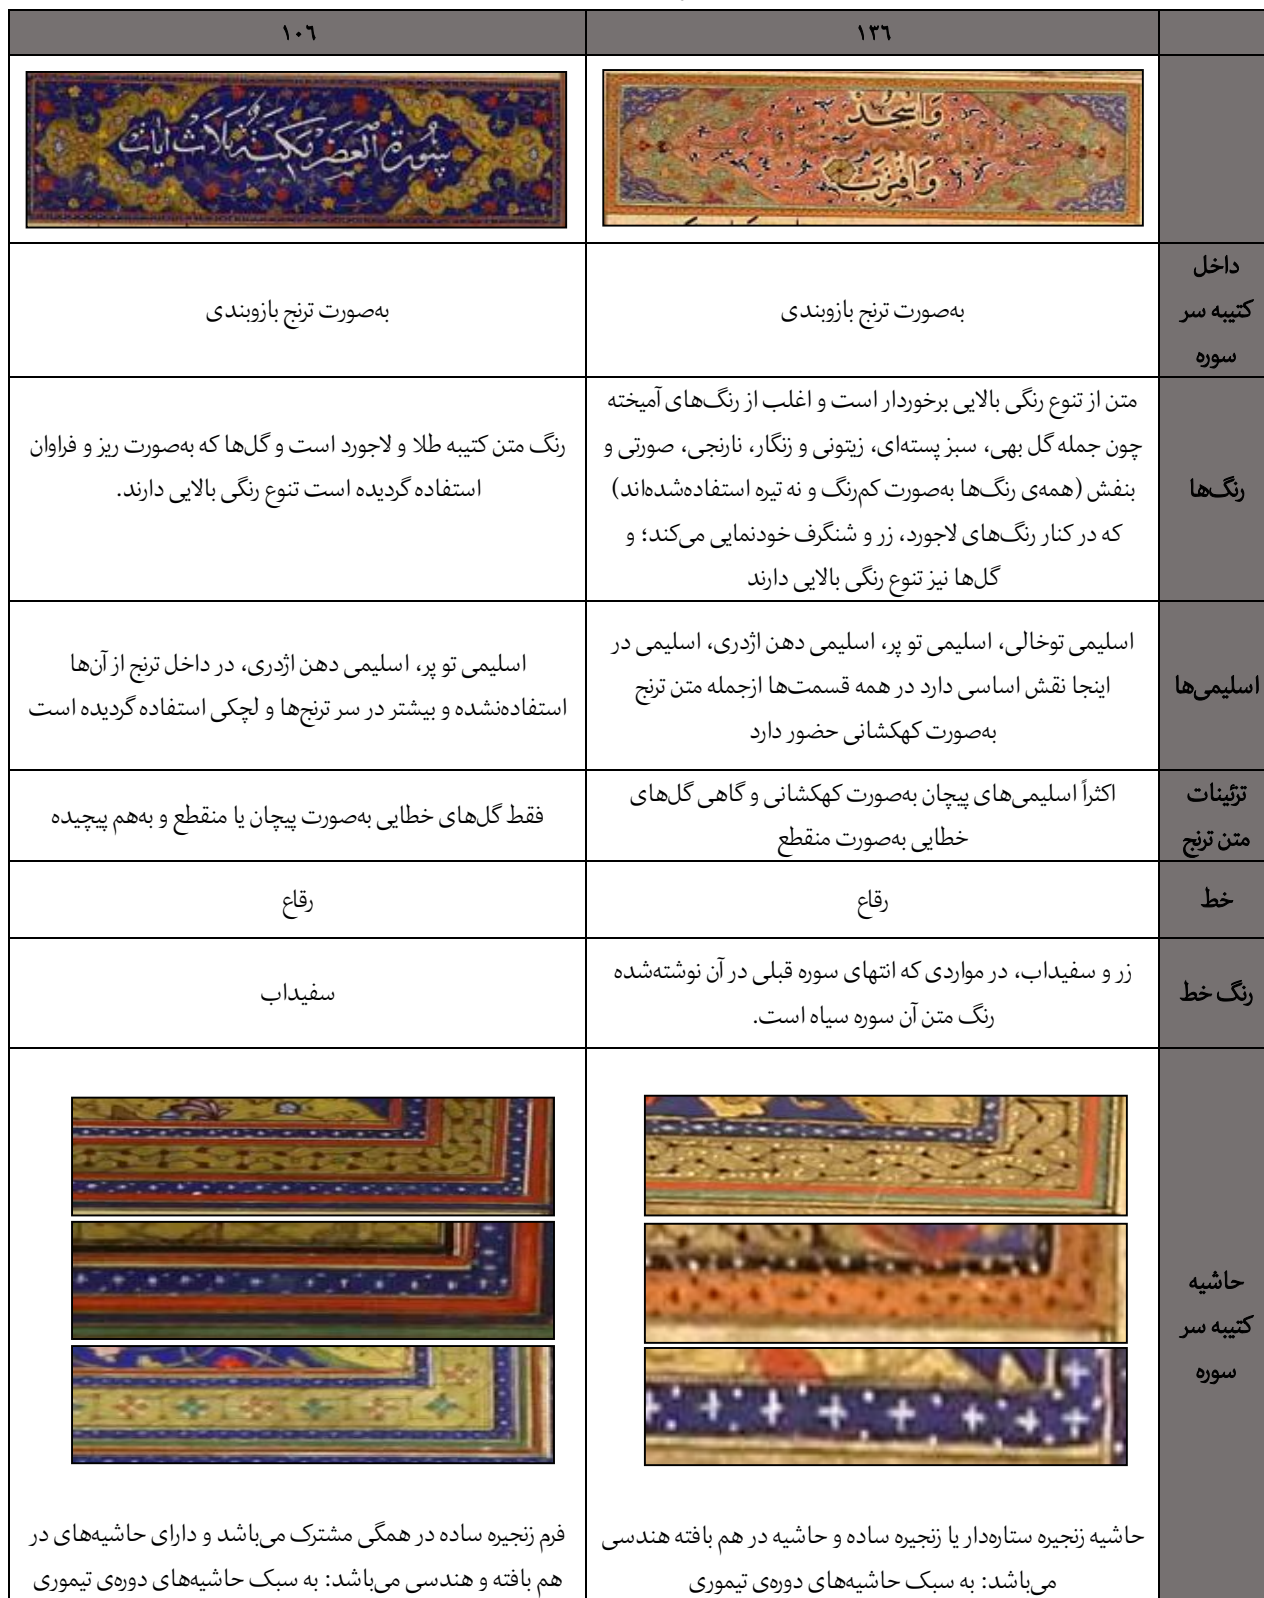 ١٣٦
١٠٦
وَاسْجُدْ
وَاقْتَرِبْ
سورة العصر مكية ثلاث آيات
داخل
کتیبه سر
سوره
به‌صورت ترنج بازوبندی
به‌صورت ترنج بازوبندی
رنگ‌ها
متن از تنوع رنگی بالایی برخوردار است و اغلب از رنگ‌های آمیخته
چون جمله گل بهی، سبز پسته‌ای، زیتونی و زنگار، نارنجی، صورتی و
بنفش (همه‌ی رنگ‌ها به‌صورت کم‌رنگ و نه تیره استفاده‌شده‌اند)
که در کنار رنگ‌های لاجورد، زر و شنگرف خودنمایی می‌کند؛ و
گل‌ها نیز تنوع رنگی بالایی دارند
رنگ متن کتیبه طلا و لاجورد است و گل‌ها که به‌صورت ریز و فراوان
استفاده گردیده است تنوع رنگی بالایی دارند.
اسلیمی‌ها
اسلیمی توخالی، اسلیمی تو پر، اسلیمی دهن اژدری، اسلیمی در
اینجا نقش اساسی دارد در همه قسمت‌ها ازجمله متن ترنج
به‌صورت کهکشانی حضور دارد
اسلیمی تو پر، اسلیمی دهن اژدری، در داخل ترنج از آن‌ها
استفاده‌نشده و بیشتر در سر ترنج‌ها و لچکی استفاده گردیده است
تزئینات
متن ترنج
اکثراً اسلیمی‌های پیچان به‌صورت کهکشانی و گاهی گل‌های
خطایی به‌صورت منقطع
فقط گل‌های خطایی به‌صورت پیچان یا منقطع و به‌هم پیچیده
خط
رقاع
رقاع
رنگ خط
زر و سفیداب، در مواردی که انتهای سوره قبلی در آن نوشته‌شده
رنگ متن آن سوره سیاه است.
سفیداب
حاشیه
کتیبه سر
سوره
حاشیه زنجیره ستاره‌دار یا زنجیره ساده و حاشیه در هم بافته هندسی
می‌باشد: به سبک حاشیه‌های دوره‌ی تیموری
فرم زنجیره ساده در همگی مشترک می‌باشد و دارای حاشیه‌های در
هم بافته و هندسی می‌باشد: به سبک حاشیه‌های دوره‌ی تیموری